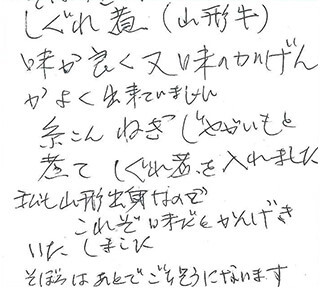 しぐれ煮 (山形牛)
味が良く又味のかげん
がよく出来ていました
糸こん ねぎ じゃがいもと
煮て しぐれ煮を入れました
私も山形出身なので
これぞ味だとかんげき
いたしました
そぼろはあとでごちそうになります